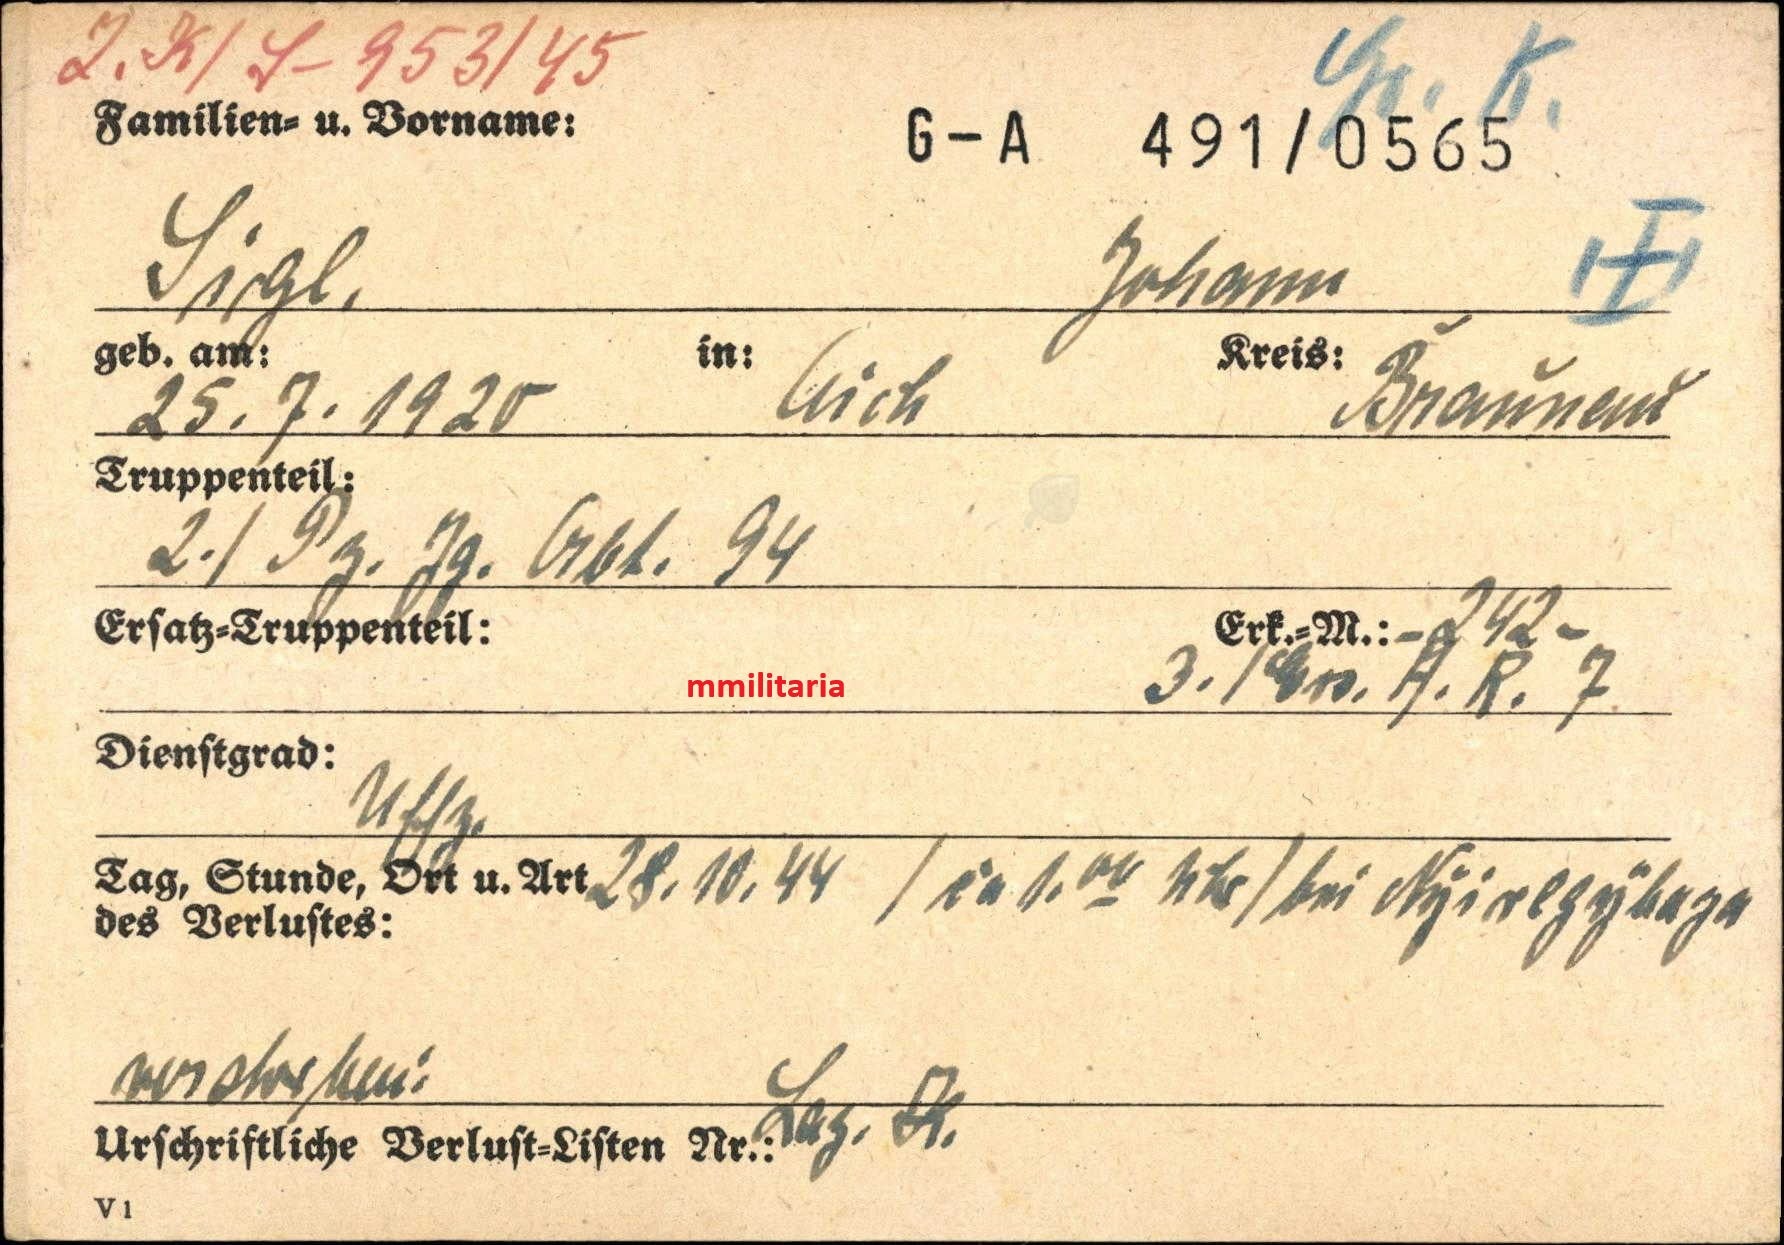 J. K/ S- 953/45
Gr. K.
Familien- u. Vorname:
G-A 491/0565
Sigl, Johann
geb. am: in: Kreis:
25. 7. 1920 Aich Braunau
Truppenteil:
2./ Pz. Jg. Abt. 94
Ersatz-Truppenteil: Erk.-M.: - 242 -
mmilitaria
3. / En. A. R. 7
Dienstgrad:
Uffz.
Tag, Stunde, Ort u. Art 28. 10. 44 / ca 1.oo Uhr / bei Nyiregyhaza
des Verlustes:
verstorben:
Urschriftliche Verlust-Listen Nr.: Laz. K.
V 1